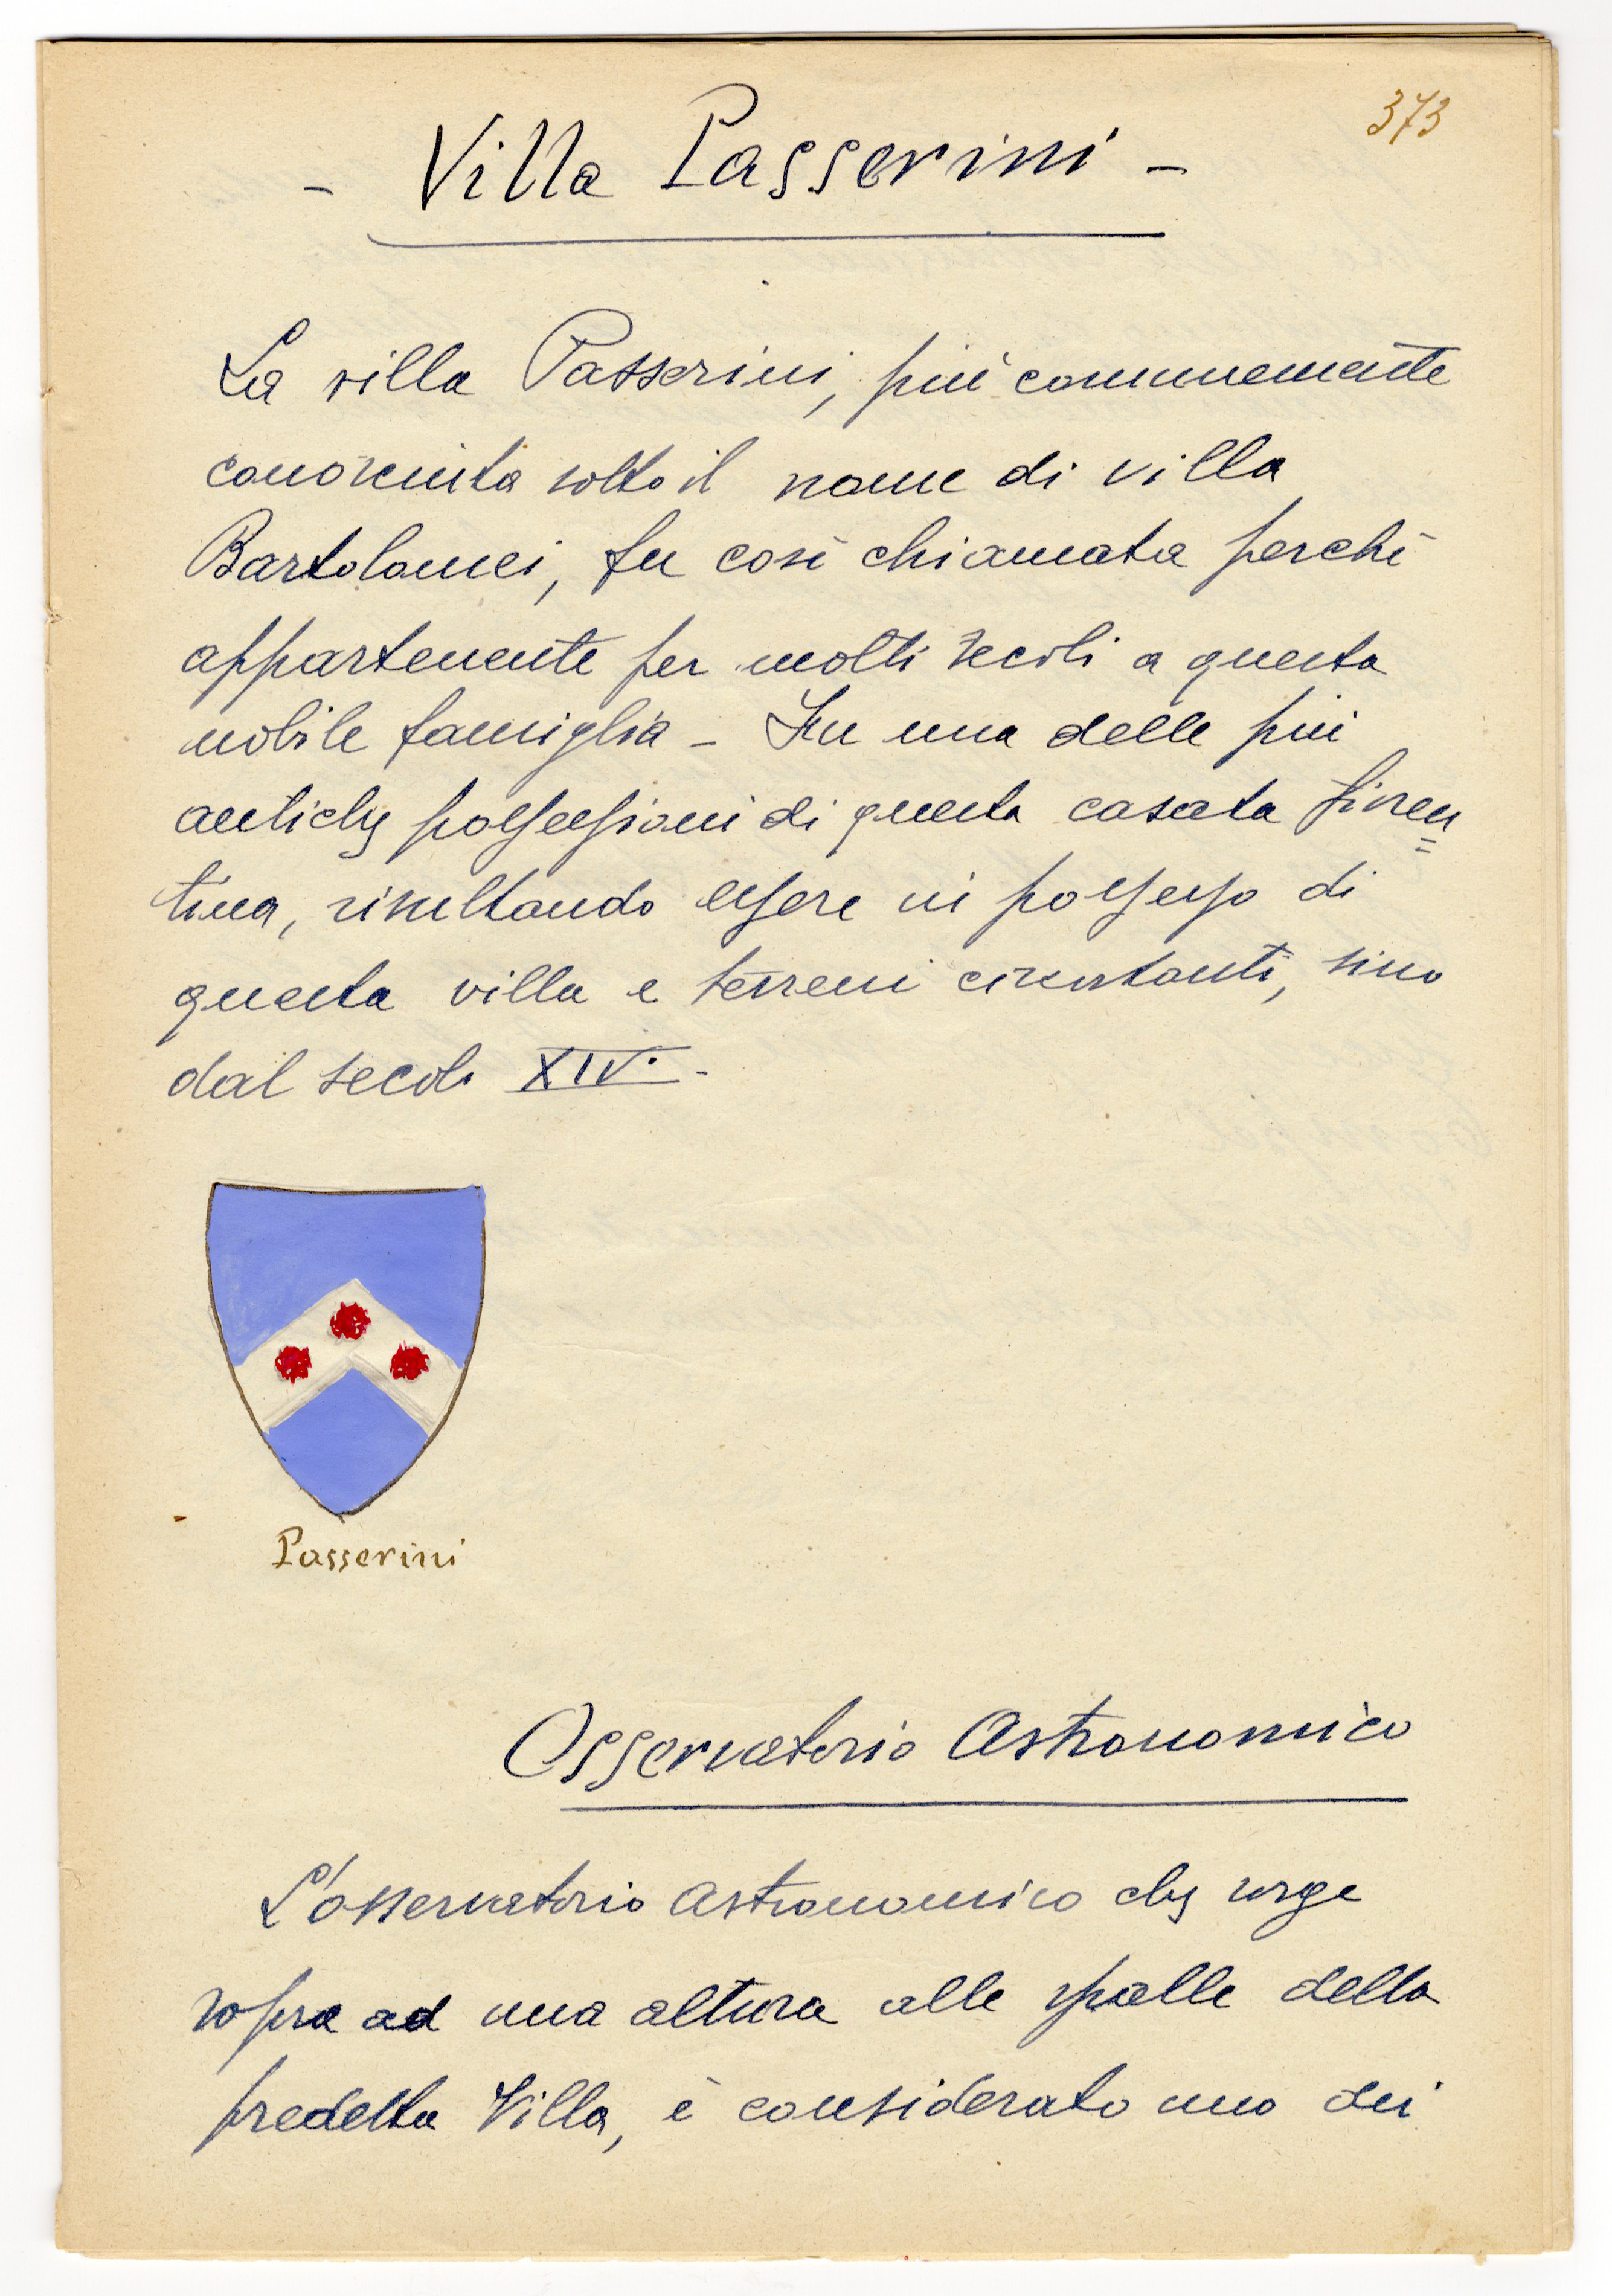 373
- Villa Passerini -
La villa Passerini, più comunemente
conosciuta sotto il nome di villa
Bartolomei, fu così chiamata perché
appartenente per molti secoli a questa
nobile famiglia - Fu una delle più
antiche possessioni di questa casata fioren=
tina, risultando essere in possesso di
questa villa e terreni circostanti, sino
dal secolo XIV. -
Passerini
Osservatorio Astronomico
L'osservatorio astronomico che sorge
sopra ad una altura alle spalle della
predetta Villa, è considerato uno dei